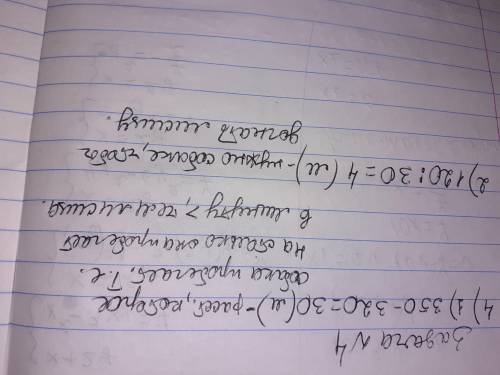 Задача №4
4) 1) 350 - 320 = 30 (м) - расст, которое
собака пробегает. Т.е.
на сколько она пробегает
в минуту >, чем лисица.
2) 120 : 30 = 4 (м) - нужно собаке, чтобы
догнать лисицу.